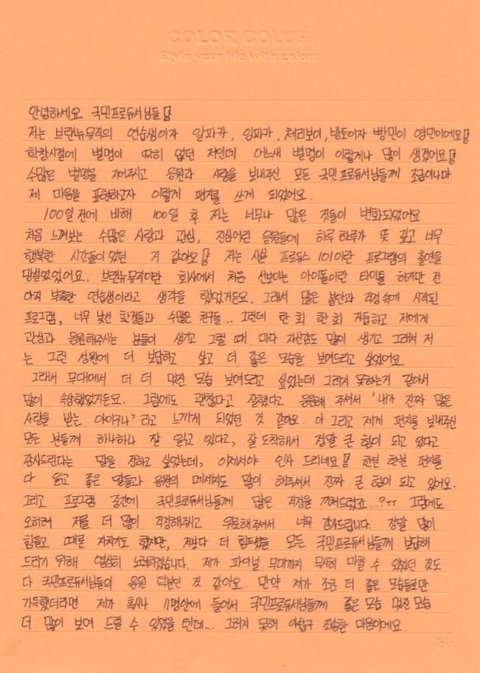 COLOR COLOR
Style your life with colour
안녕하세요 국민프로듀서님들
저는 브랜뉴뮤직의 연습생이자 알파카, 임파카, 체리보이, 병도이자 빵민이 영민이에요
학창시절에 별명이 딱히 없던 저인데 어느새 별명이 이렇게나 많이 생겼어요
수많은 별명을 지어주고 응원과 사랑을 보내주신 모든 국민프로듀서님들께 조금이나마
제 마음을 표현하고자 이렇게 편지를 쓰게 되었어요.
100일 전에 비해 100일 후 저는 너무나 많은 것들이 변화되었어요
처음 느껴보는 수많은 사랑과 관심, 진심어린 응원들에 하루하루가 뜻 깊고 너무
행복한 시간들이었던 거 같아요 저는 사실 프로듀스 101이란 프로그램의 출연을
망설였었어요. 브랜뉴뮤직이란 회사에서 처음 선보이는 아이돌이란 타이틀 하지만 전
아직 부족한 연습생이라고 생각을 했었거든요. 그래서 많은 불안과 걱정 속에 시작된
프로그램, 너무 낯선 환경들과 수많은 친구들... 그런데 한 회 한 회 거듭하고 저에게
관심과 응원해주시는 분들이 생기고 그럴 때 마다 자신감도 많이 생기고 그래서 저
는 그런 성원에 더 더 보답하고 싶고 더 좋은 모습을 보여드리고 싶었어요.
그래서 무대에서 더 더 멋진 모습 보여드리고 싶었는데 그러지 못한거 같아서
많이 속상했었거든요. 그럼에도 괜찮다고 잘했다고 응원해 주셔서 '내가 진짜 많은
사랑을 받는 아이구나' 라고 느끼게 되었던 것 같아요. 아 그리고 제게 편지를 보내주신
모든 분들께 하나하나 잘 읽고 있다고, 잘 도착해서 정말 큰 힘이 되고 있다고
감사드린다는 말을 전하고 싶었는데, 이제서야 인사 드리네요 한분 한분 편지를
다 읽고 좋은 말들과 응원의 메세지도 많이 해주셔서 진짜 큰 힘이 되고 있어요.
그리고 프로그램 중간에 국민프로듀서님들께 많은 걱정을 끼쳐드렸죠...?ㅜㅜ 그럼에도
오히려 저를 더 많이 걱정해주고 위로해주셔서 너무 감사드립니다. 정말 많이
힘들고 때론 자책하기도 했지만, 저보다 더 힘드셨을 모든 국민프로듀서님들께 보답해
드리기 위해 열심히 노력하겠습니다. 제가 파이널 무대까지 무사히 마칠 수 있었던 것도
다 국민프로듀서님들의 응원 덕분인 것 같아요. 만약 제가 조금 더 좋은 모습들로만
가득했더라면 제가 혹시나 11명안에 들어서 국민프로듀서님들께 좋은 모습 멋진 모습
더 많이 보여 드릴 수 있었을 텐데... 그러지 못해 아쉽고 죄송한 마음이에요.